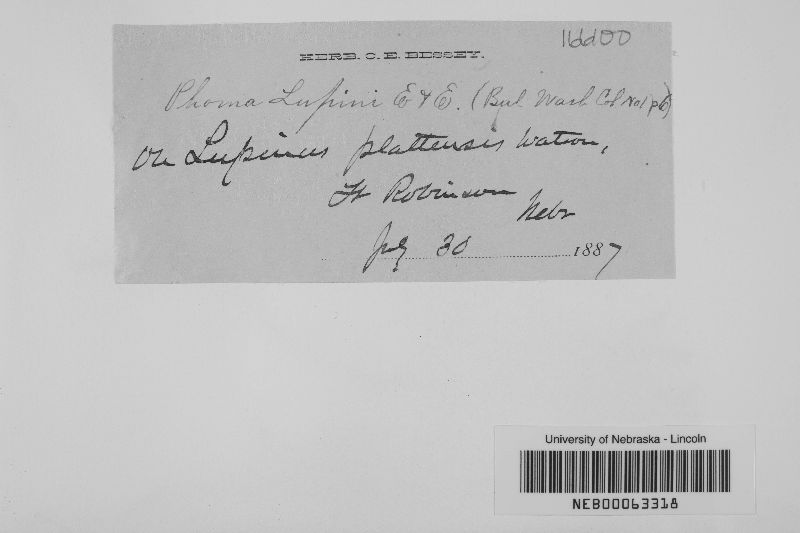 11dd00
HERB. C. E. BESSEY.
Phoma Lupini E & E. (Bul Wash Col No 1 p 6)
on Lupinus plattensis Watson,
Ft Robinson
Nebr
July 30 1887
University of Nebraska - Lincoln
NEB00063318